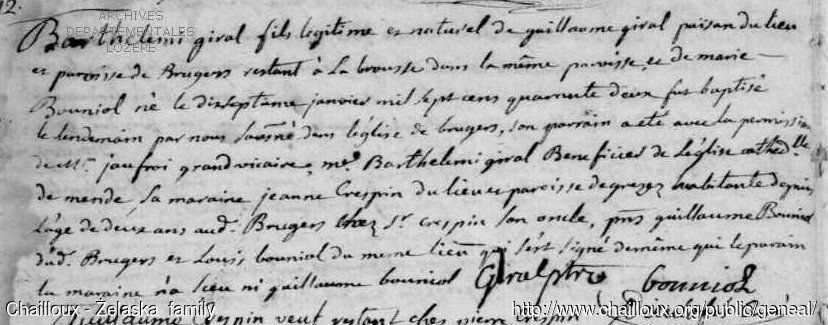 12.
ARCHIVES
DEPARTEMENTALES
LOZERE
Barthelemi giral fils legitime et naturel de guillaume giral paisan du lieu
et paroisse de Brugers restant à La brousse dans la même paroisse, et de marie
Bouniol né le dixseptième janvier mil sept cens quarante deux fut baptisé
le lendemain par nous dans l'église de brugers, son parrain a eté avec la permission
de Mr. jaufroi grand vicaire, me. Barthelemi giral Beneficier de L'église cathedlle
de mende, sa maraine jeanne Crespin du lieu et paroisse de grezes habitante depuis
l'age de deux ans aud. Brugers chez Sr. crespin son oncle, pns guillaume Bouniol
dud. Brugers et Louis bouniol du meme lieu qui s'est signé de même que le parain
la maraine n'a sceu ni guillaume bouniol Giral ptre bouniol
Guillaume Crespin restant ches pierre crespin
Chailloux - Zelaska family
http://www.chailloux.org/public/geneal/